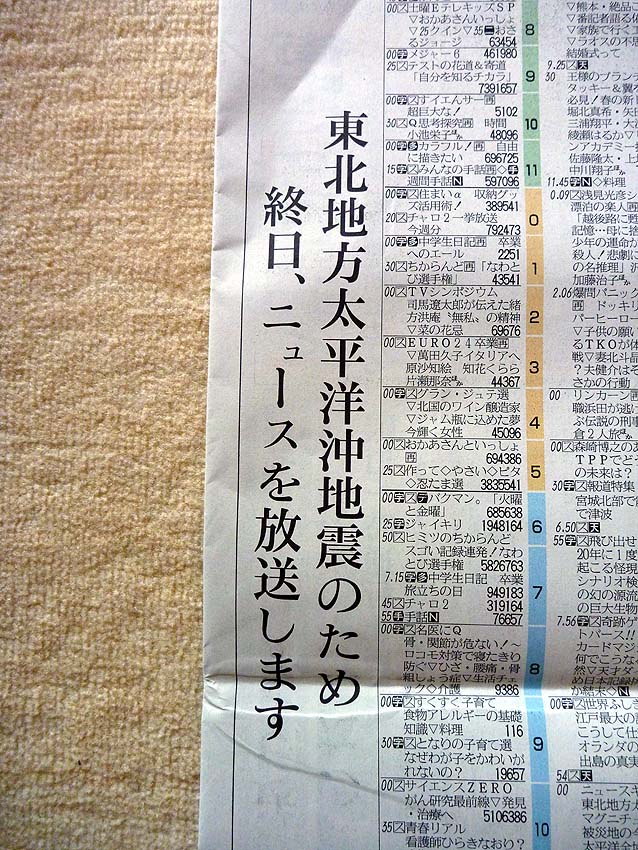 東北地方太平洋沖地震のため
終日、ニュースを放送します
00ス土曜EテレキッズSP
▽おかあさんいっしょ
▽25クイン▽35二おさ
るジョージ 63454
00字メジャー6 461980
25ステストの花道&寄道
「自分を知るチカラ」
7391657
00字スすイエんサー再
超巨大な! 5102
30スQ思考探究再 時間
小池栄子ほか 48096
00字多カラフル!再 自由
に描きたい 696725
15字みんなの手話再◇手
週間手話N 597096
00字ス住まいα 収納グッ
ズ活用術! 383541
20スチャロ2一挙放送
今週分 792473
00字多中学生日記再 卒業
へのエール 2251
30スちからんど再「なわと
び選手権」 43541
00スTVシンポジウム
司馬遼太郎が伝えた緒
方洪庵〝無私〟の精神
▽菜の花忌 69676
00スEURO24卒業再
▽萬田久子イタリアへ
原沙知絵 知花くらら
片瀬那奈ほか 44367
00字スグラン・ジュテ選
▽北国のワイン醸造家
▽ジャム瓶に込めた夢
今輝く女性 45096
00スおかあさんといっしょ
再 694386
25ス作って◇やさい◇ピタ
◇忍たま選 3835541
00字ステバクマン。「火曜
と金曜」 685638
25字ジャイキリ 1948164
50スヒミツのちからんど
スゴい記録連発!なわ
とび選手権 5826763
7.15字多中学生日記 卒業
旅立ちの日 949183
45スチャロ2 319164
55手手話N 76657
00字ス名医にQ
骨・関節が危ない!〜
ロコモ対策で寝たきり
防ぐ▽ひざ・腰痛・骨
粗しょう症▽生活チェ
ック◇介護 9386
00字スすくすく子育て
食物アレルギーの基礎
知識▽料理 116
30字スとなりの子育て選
なぜわが子をかわいが
れないの? 19657
00スサイエンスZERO
がん研究最前線▽発見
・治療へ 5106386
35ス青春リアル
看護師ひらきなおり?
8
9
10
11
0
1
2
3
4
5
6
7
8
9
10
▽熊本・絶品こ
▽番記者語る依
▽家族で行くエ
▽ラオスの不思
結婚式って
9.25ス天
30 王様のブラン
タッキー&翼
必見!春の新
堀北真希・矢
三浦翔平・大
綾瀬はるか▽
ンアカデミー
佐藤隆太・上
中川翔子ほか
11.45字N◇料理
0.09ス浅見光彦シ
漂泊の楽人再
「越後路に甦
記憶…母に捨
少年の運命が
殺人!悲劇に
の名推理」沢
加藤治子ほか
2.06爆問パニック
再 ドッキリ
パーヒーロー
▽子供の願い
るTKOが体
戦▽妻北斗晶
?夫健介はそ
さかの行動
00 リンカーン再
職浜田が逃げ
ぶ伝説の刑事
倉2人旅ほか
00ス森崎博之のあ
TPPでどこ
の未来は?
30字ス報道特集
宮城北部で
で津波
6.50ス天
55字ス飛び出せ
20年に1度
起こる怪現
シナリオ検
の幻の源流
の巨大生物
7.56字ス奇跡ゲ
トバース!!
カードマジ
何でこうな
然▽天才ダ
め日本記録
が結末◇N
00字ス世界ふし
江戸最大の
こうして仕
オランダの
出島の真実
54ス天
00 ニュースキ
東北地方太
マグニチ
被災地の今
太平洋全